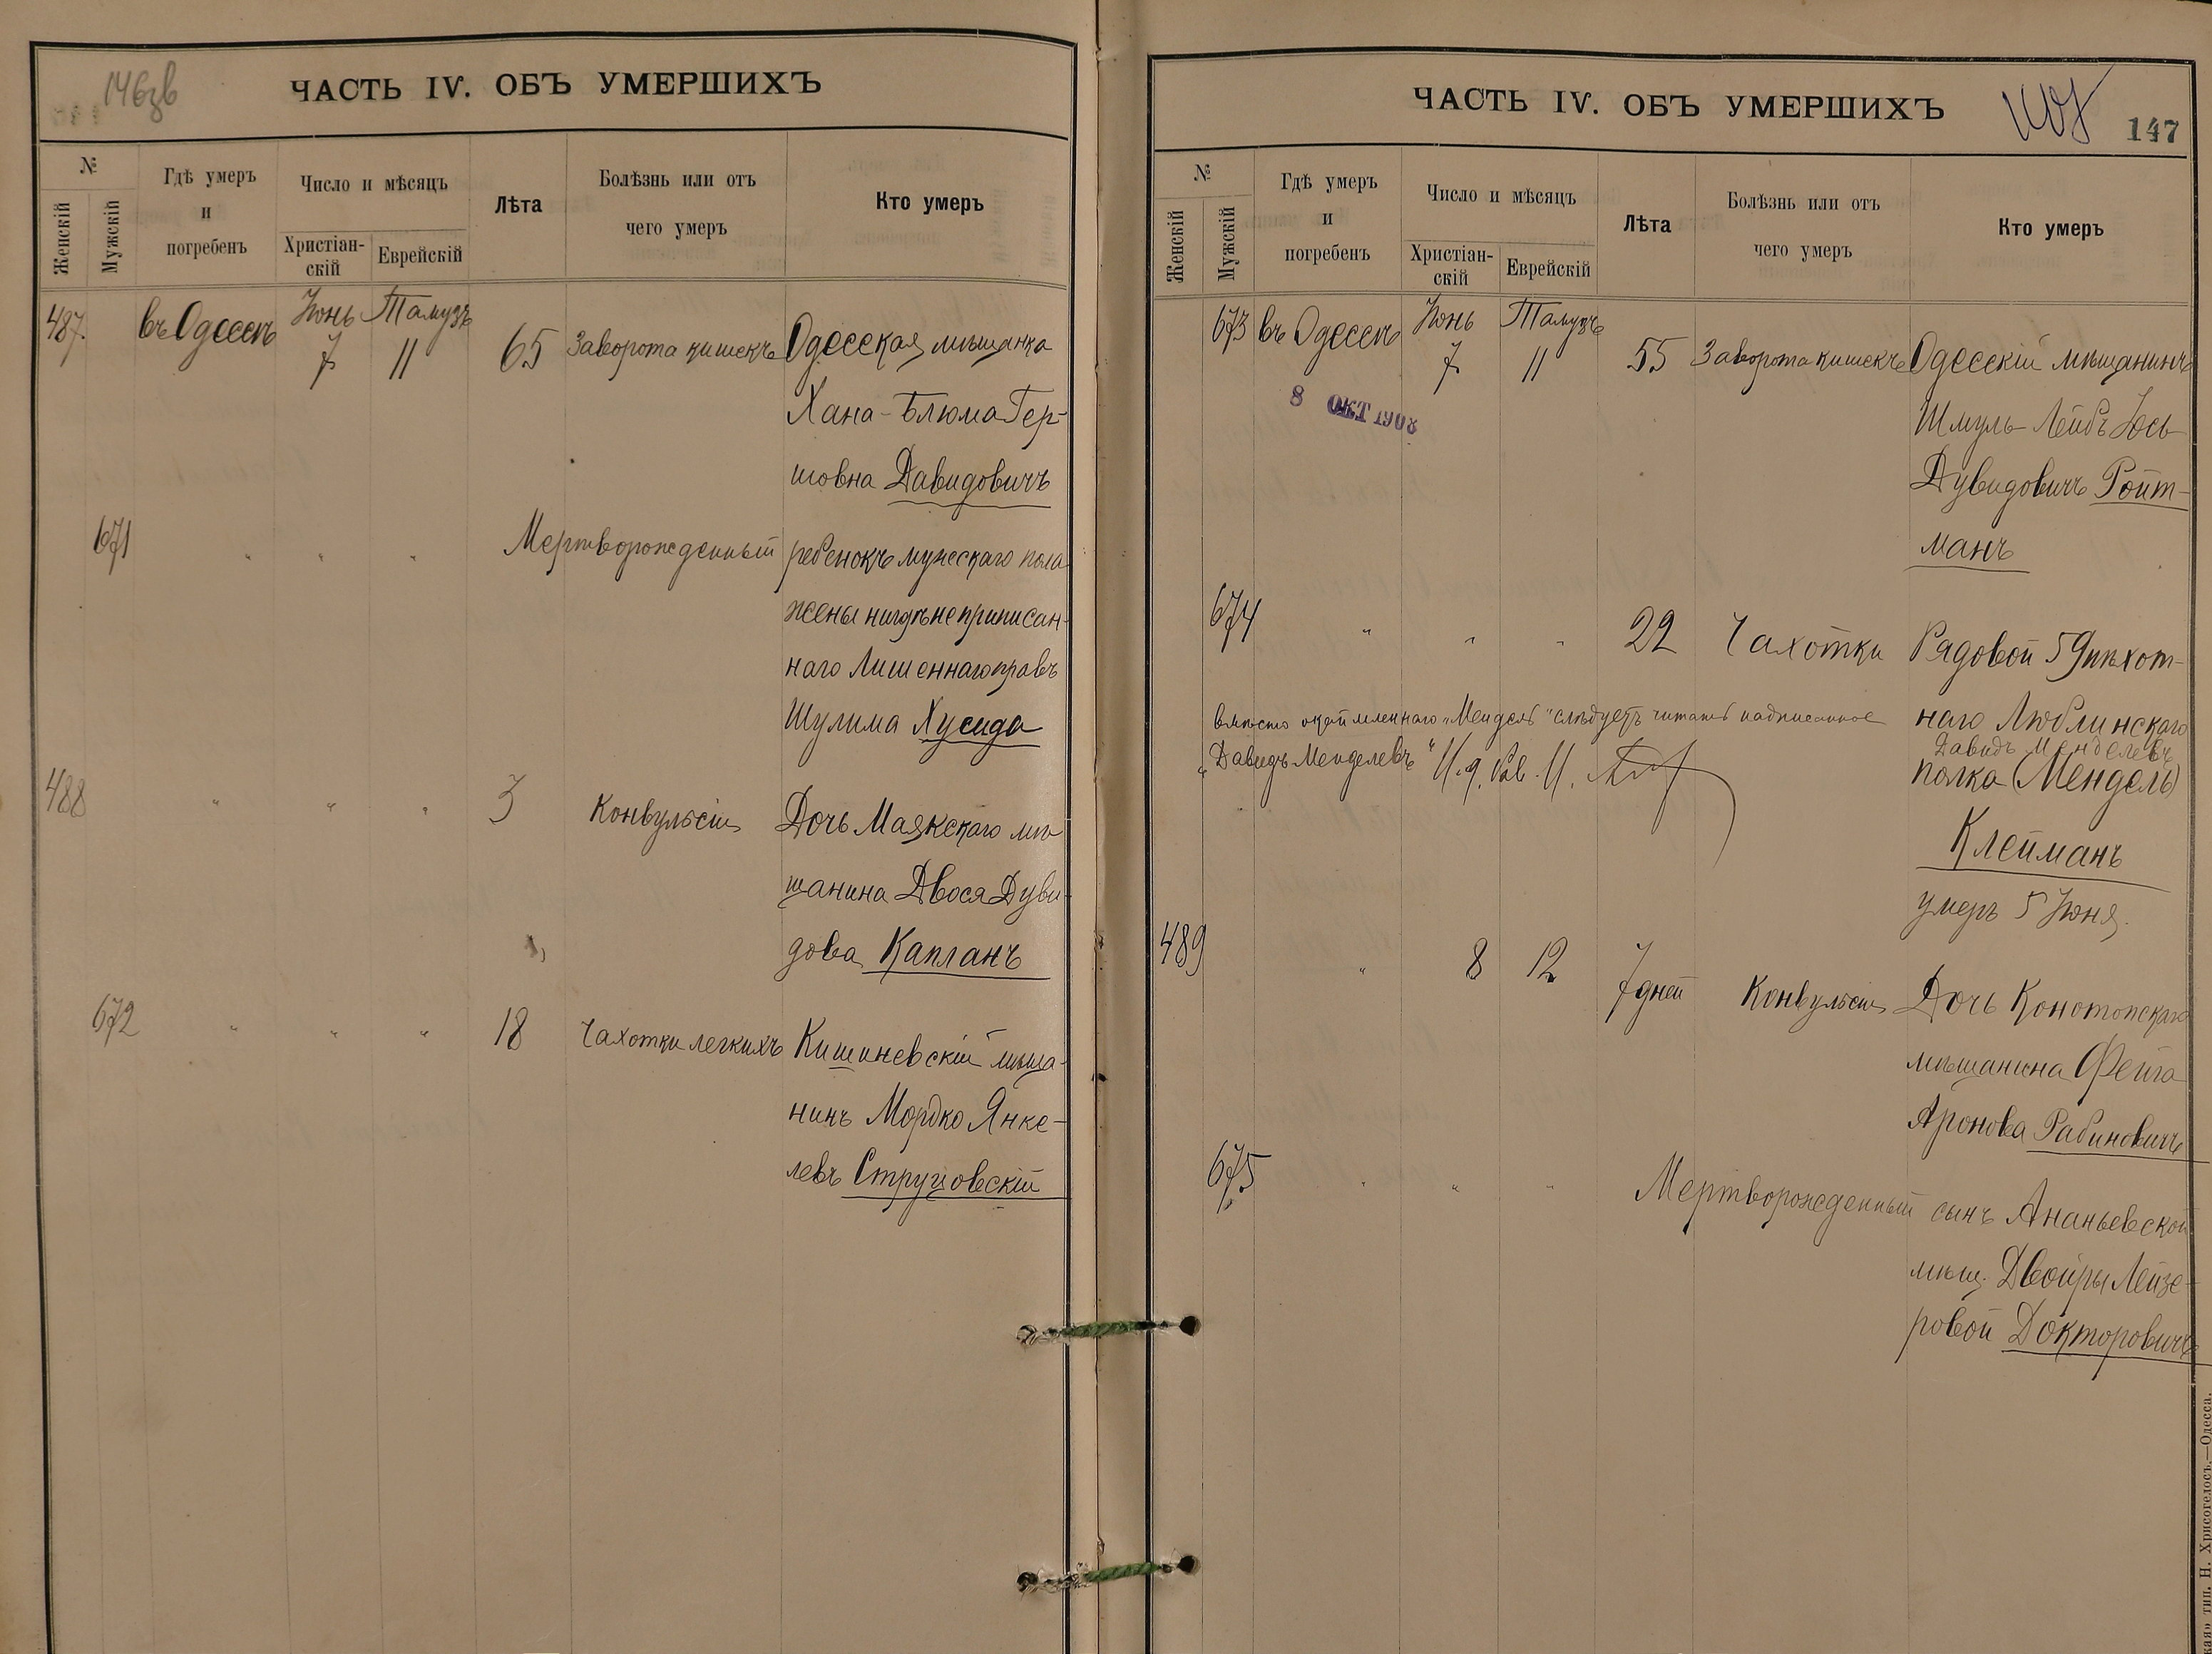 146зв
ЧАСТЬ IV. ОБЪ УМЕРШИХЪ
№
Женскій
Мужскій
Гдѣ умеръ
и
погребенъ
Число и мѣсяцъ
Христіан-
скій
Еврейскій
Лѣта
Болѣзнь или отъ
чего умеръ
Кто умеръ
487. въ Одессѣ Іюнь 7 Тамузъ 11 65 Заворота кишекъ Одесская мѣщанка
Хана-Блюма Гер-
шовна Давидовичъ
671 " " " Мертворожденный ребенокъ мужескаго пола
жены нигдѣ не приписан-
наго Лишеннаго правъ
Шулима Хусида
488 " " " 3 Конвульсіи Дочь Маякскаго мѣ
щанина Двося Дуви-
дова Капланъ
672 " " " 18 Чахотки легкихъ Кишиневскій мѣща-
нинъ Мордко Янке-
левъ Струцовскій
ЧАСТЬ IV. ОБЪ УМЕРШИХЪ
147
№
Женскій
Мужскій
Гдѣ умеръ
и
погребенъ
Число и мѣсяцъ
Христіан-
скій
Еврейскій
Лѣта
Болѣзнь или отъ
чего умеръ
Кто умеръ
673 въ Одессѣ Іюнь 7 Тамузъ 11 55 Заворота кишекъ Одесскій мѣщанинъ
8 ОКТ 1908
Шмуль-Лейбъ Іось-
Дувидовичъ Ройт-
манъ
674 " " " 22 Чахотки Рядовой 59 пѣхот-
наго Люблинскаго
Давидъ Менделевъ
полка (Мендель)
Клейманъ
умеръ 5 Іюня.
вмѣсто окаймленнаго „Мендель" слѣдуетъ читать надписанное
„Давидъ Менделевъ" И. д. Рав. И.
489 " 8 12 7 дней Конвульсіи Дочь Конотопскаго
мѣщанина Фейга
Аронова Рабиновичъ
675 " " " Мертворожденный сынъ Ананьевской
мѣщ. Двойры Лейзе-
ровой Докторовичъ
тип. Н. Хрисогелосъ.—Одесса.